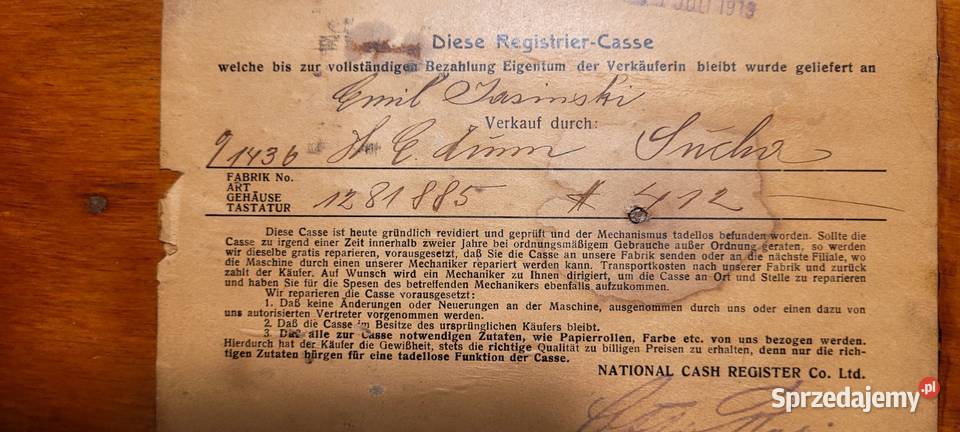 JULI 1913
Diese Registrier-Casse
welche bis zur vollständigen Bezahlung Eigentum der Verkäuferin bleibt wurde geliefert an
Emil Jasinski
Verkauf durch:
91436 H. E. Sucha
FABRIK No.
ART
GEHÄUSE
TASTATUR
1281885 # 412
Diese Casse ist heute gründlich revidiert und geprüft und der Mechanismus tadellos befunden worden. Sollte die
Casse zu irgend einer Zeit innerhalb zweier Jahre bei ordnungsmäßigem Gebrauche außer Ordnung geraten, so werden
wir dieselbe gratis reparieren, vorausgesetzt, daß Sie die Casse an unsere Fabrik senden oder an die nächste Filiale, wo
die Maschine durch einen unserer Mechaniker repariert werden kann. Transportkosten nach unserer Fabrik und zurück
zahlt der Käufer. Auf Wunsch wird ein Mechaniker zu Ihnen dirigiert, um die Casse an Ort und Stelle zu reparieren
und haben Sie für die Spesen des betreffenden Mechanikers ebenfalls aufzukommen.
Wir reparieren die Casse vorausgesetzt:
1. Daß keine Änderungen oder Neuerungen an der Maschine, ausgenommen durch uns oder einen dazu von
uns autorisierten Vertreter vorgenommen werden.
2. Daß die Casse im Besitze des ursprünglichen Käufers bleibt.
3. Daß alle zur Casse notwendigen Zutaten, wie Papierrollen, Farbe etc. von uns bezogen werden.
Hierdurch hat der Käufer die Gewißheit, stets die richtige Qualität zu billigen Preisen zu erhalten, denn nur die rich-
tigen Zutaten bürgen für eine tadellose Funktion der Casse.
NATIONAL CASH REGISTER Co. Ltd.
Sprzedajemy.pl